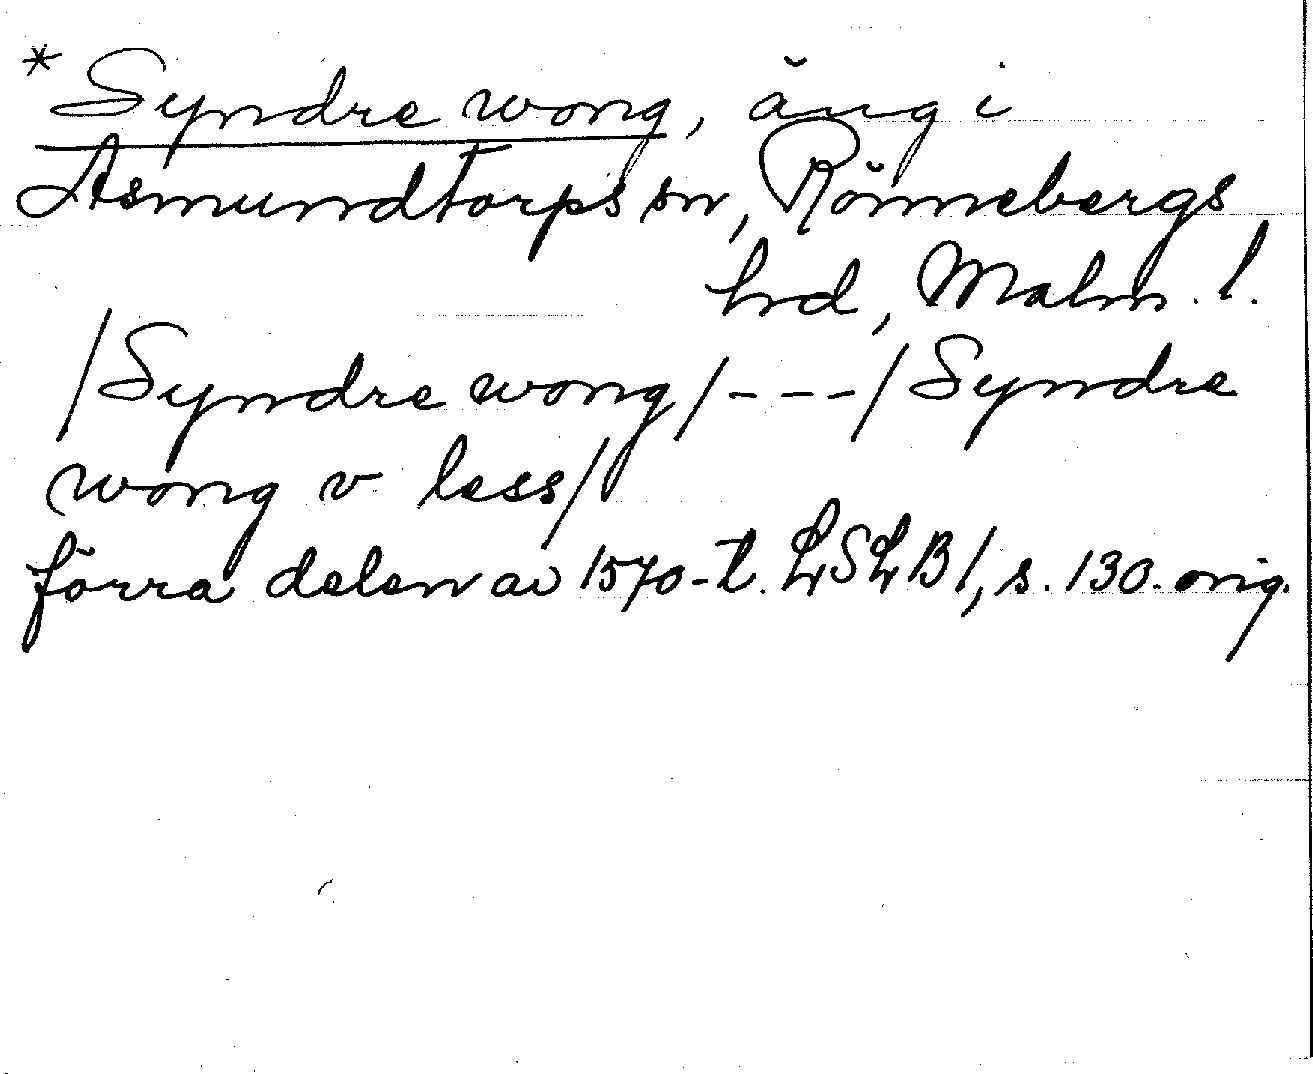 *Syndre wong, äng i
Asmundtorps sn, Rönnebergs
hrd, Malm. l.
/Syndre wong/---/Syndre
wong v less/
förra delen av 1570-t. LSLB1, s. 130. orig.